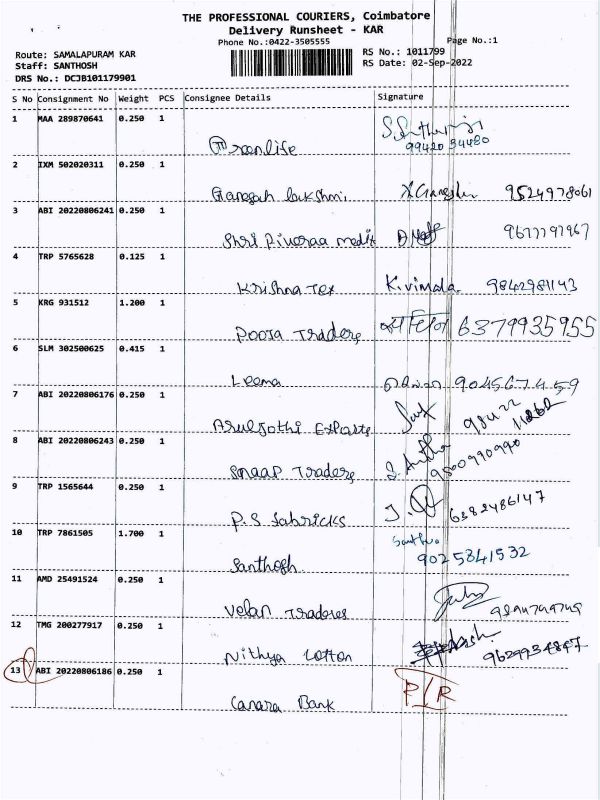 THE PROFESSIONAL COURIERS, Coimbatore
Delivery Runsheet - KAR
Phone No.:0422-3505555
Page No.:1
Route: SAMALAPURAM KAR
RS No.: 1011799
Staff: SANTHOSH
RS Date: 02-Sep-2022
DRS No.: DCJB101179901
S No Consignment No Weight PCS Consignee Details Signature
1 MAA 289870641 0.250 1
Greenlife 99420 34480
2 IXM 502020311 0.250 1
Ganesh lakshmi 9524978061
3 ABI 20220806241 0.250 1
Shri
4 TRP 5765628 0.125 1
Krishna Tex K.vimala 9842981143
5 KRG 931512 1.200 1
Pooja Traders 6379935955
6 SLM 302500625 0.415 1
Leema
7 ABI 20220806176 0.250 1
Aruljothi Exports
8 ABI 20220806243 0.250 1
Snaap Traders
9 TRP 1565644 0.250 1
P.S fabricks 6382486147
10 TRP 7861505 1.700 1
Santhosh 9025341532
11 AMD 25491524 0.250 1
Velan Traderes
12 TMG 200277917 0.250 1
Nithya Cotton
13 ABI 20220806186 0.250 1
Canara Bank